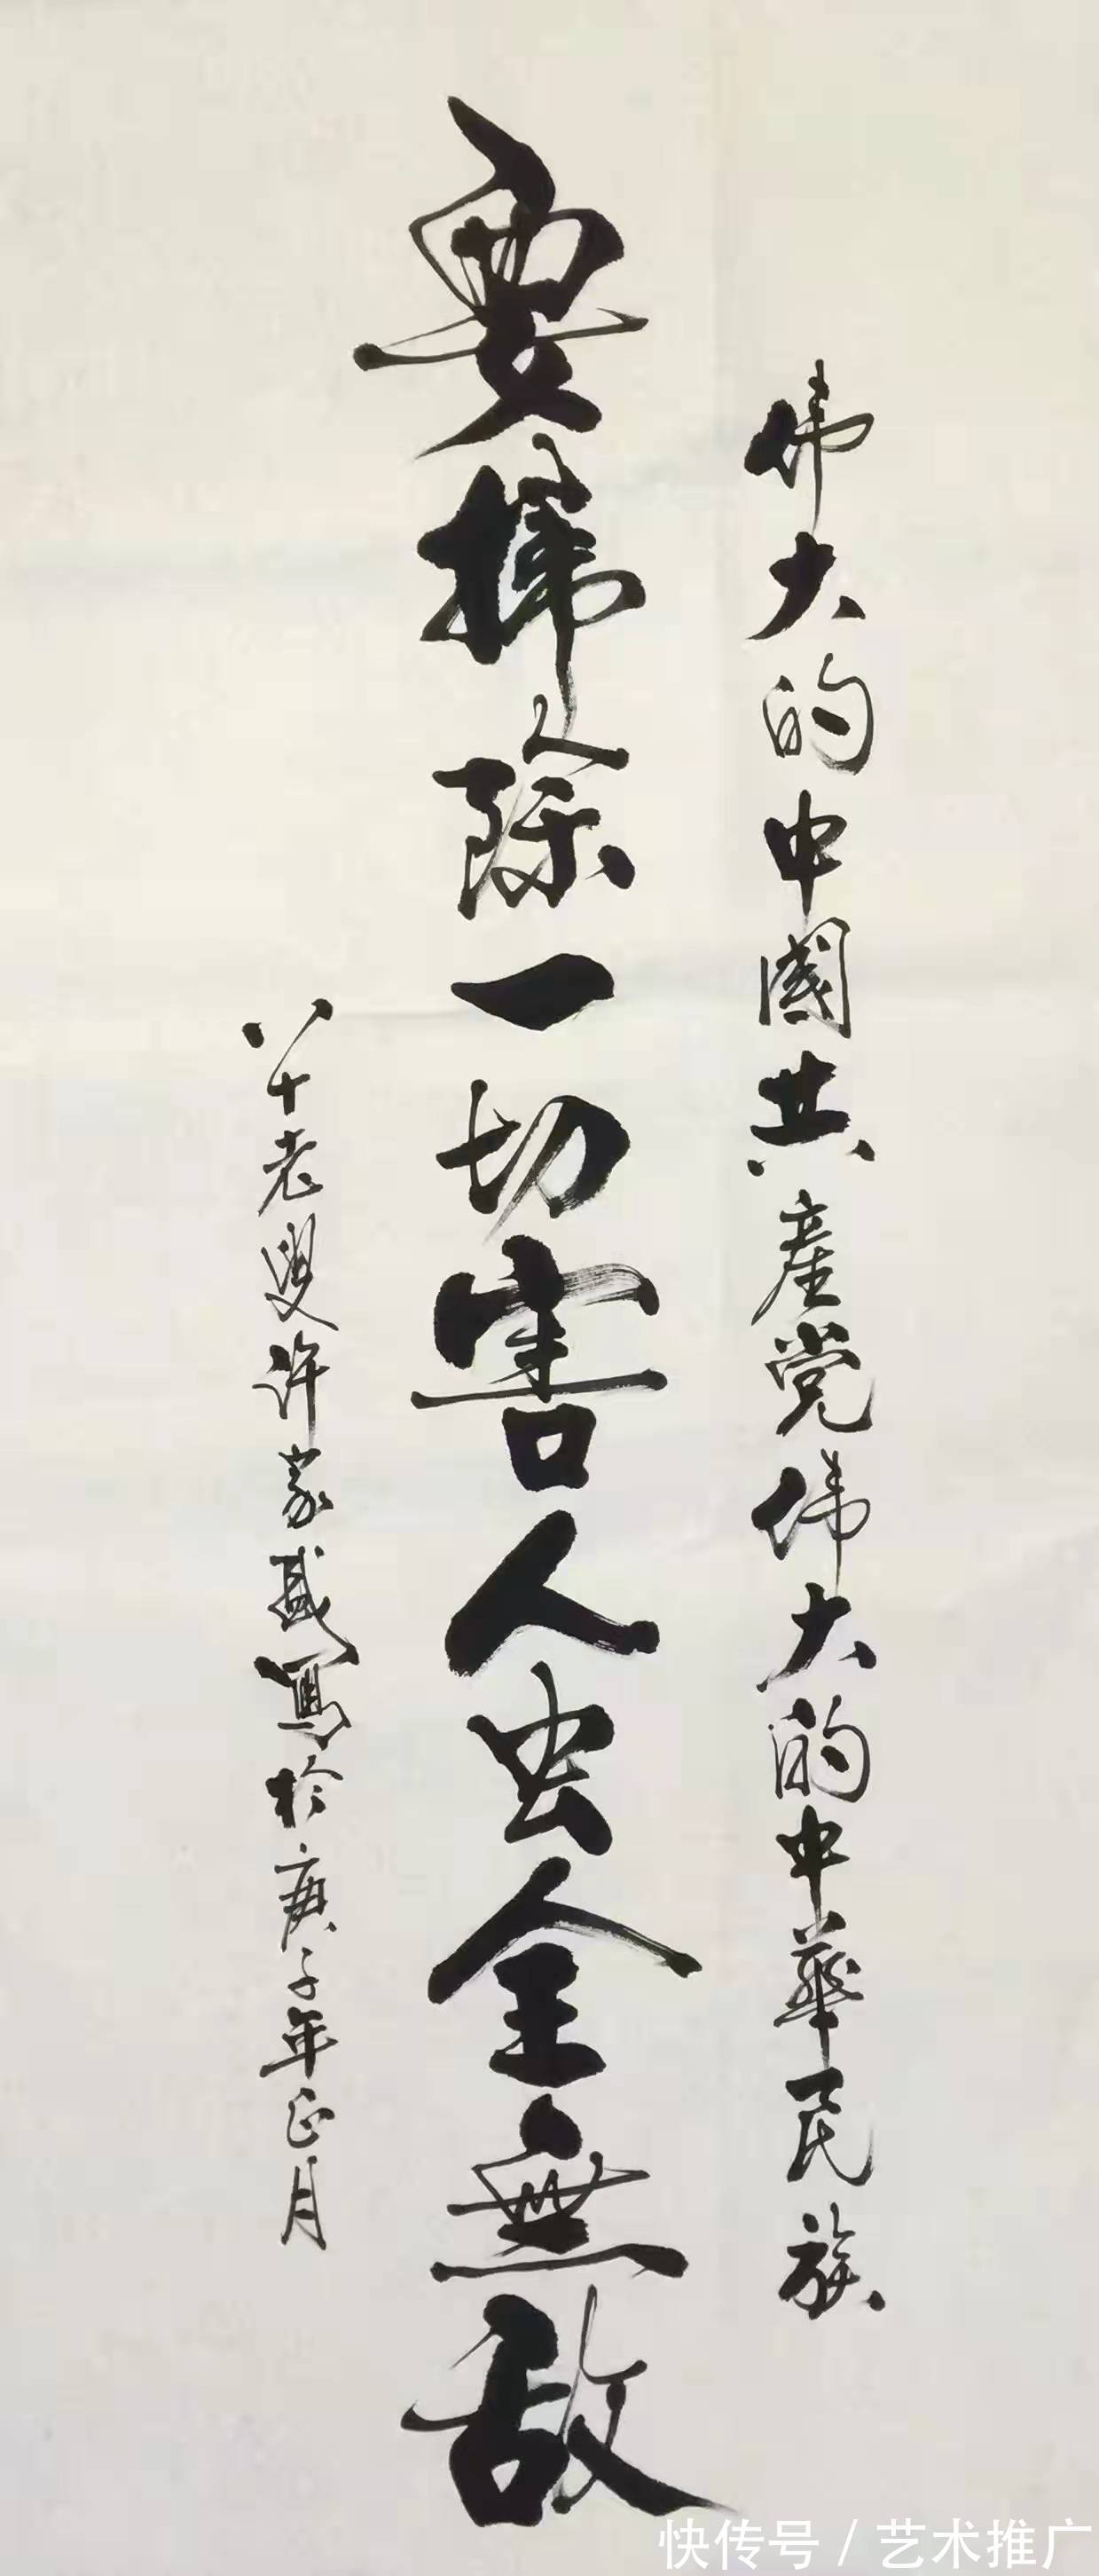 伟大的中國共産党伟大的中華民族
要掃除一切害人虫全無敌
八十老叟许家盛寫於庚子年正月
快传号/艺术推广